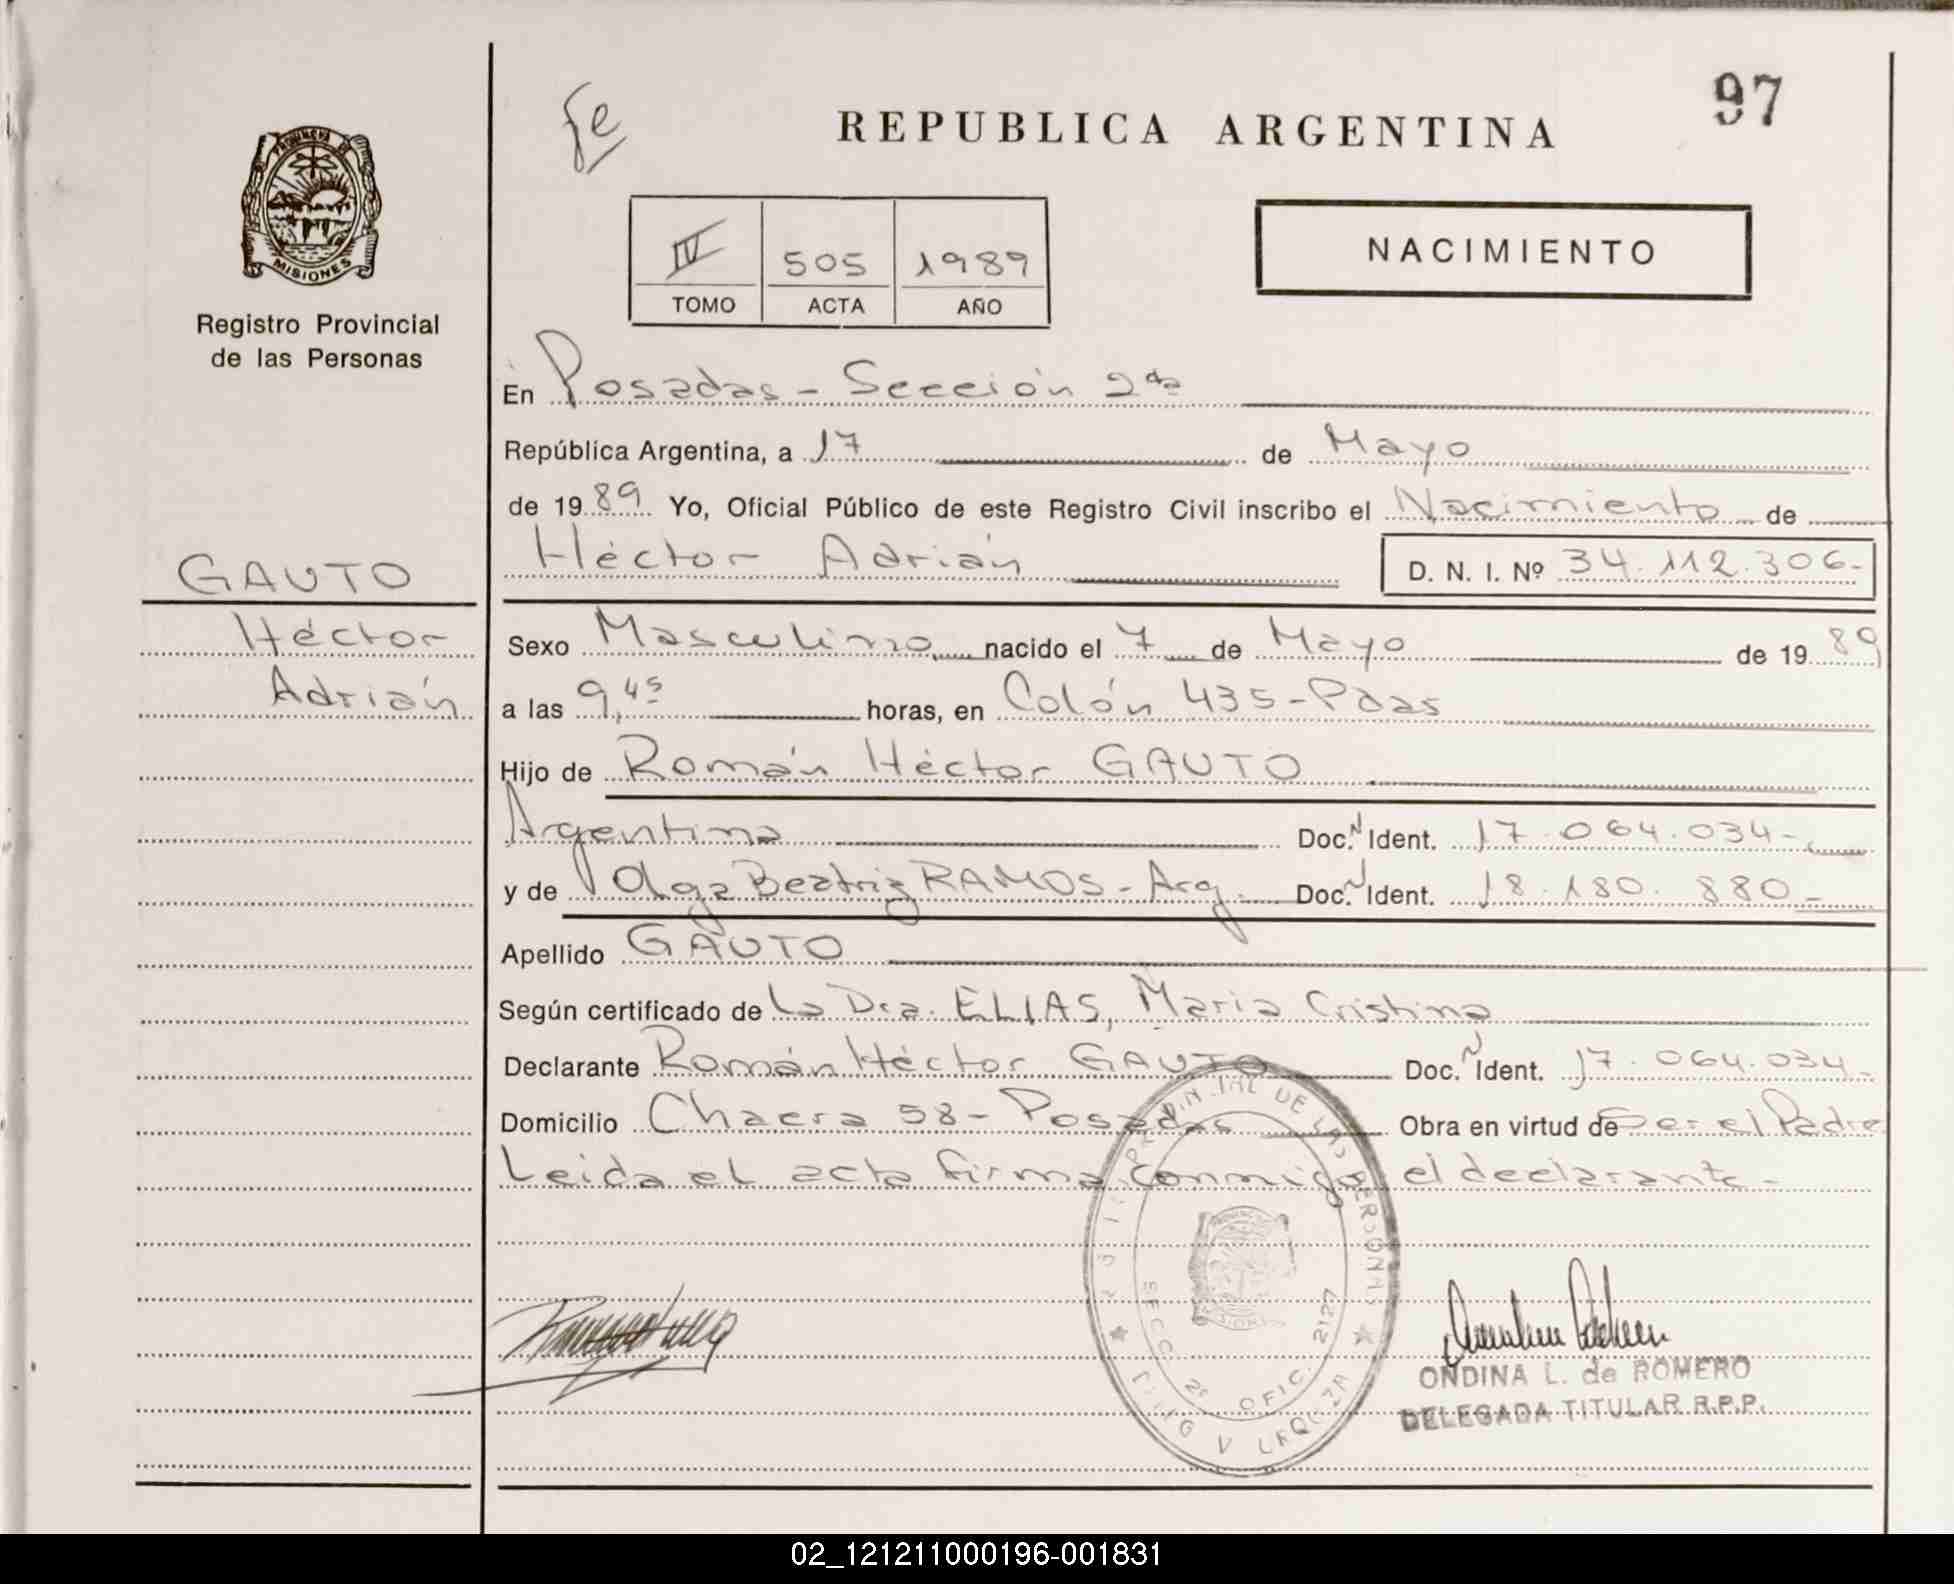 97
Fe
REPUBLICA ARGENTINA
PROVINCIA DE
MISIONES
Registro Provincial
de las Personas
IV 505 1989
TOMO ACTA AÑO
NACIMIENTO
En Posadas - Sección 2da
República Argentina, a 17 de Mayo
de 1989 Yo, Oficial Público de este Registro Civil inscribo el Nacimiento de
Héctor Adrián D. N. I. Nº 34.112.306-
GAUTO
Héctor
Adrián
Sexo Masculino nacido el 7 de Mayo de 1989
a las 9,45 horas, en Colón 435-Pdas
Hijo de Román Héctor GAUTO
Argentina Doc. Ident. 17.064.034-
y de Olga Beatriz RAMOS - Arg. Doc. Ident. 18.180.880-
Apellido GAUTO
Según certificado de La Dra. ELIAS, Maria Cristina
Declarante Román Héctor GAUTO Doc. Ident. 17.064.034-
Domicilio Chacra 58 - Posadas Obra en virtud de Ser el Padre
Leida el acta firma conmigo el declarante-
DE LAS PERSONAS
SECC. 2ª OFIC. 2127
ONDINA L. de ROMERO
DELEGADA TITULAR R.P.P.
02_121211000196-001831